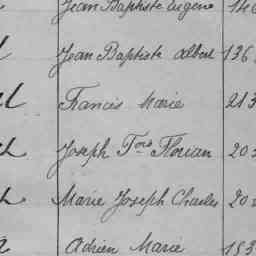 Jean Baptiste Eugène 146
Jean Baptiste Albert 136
Francis Marie 213
Joseph Fois Florian 20
Marie Joseph Charles 20
Adrien Marie 153